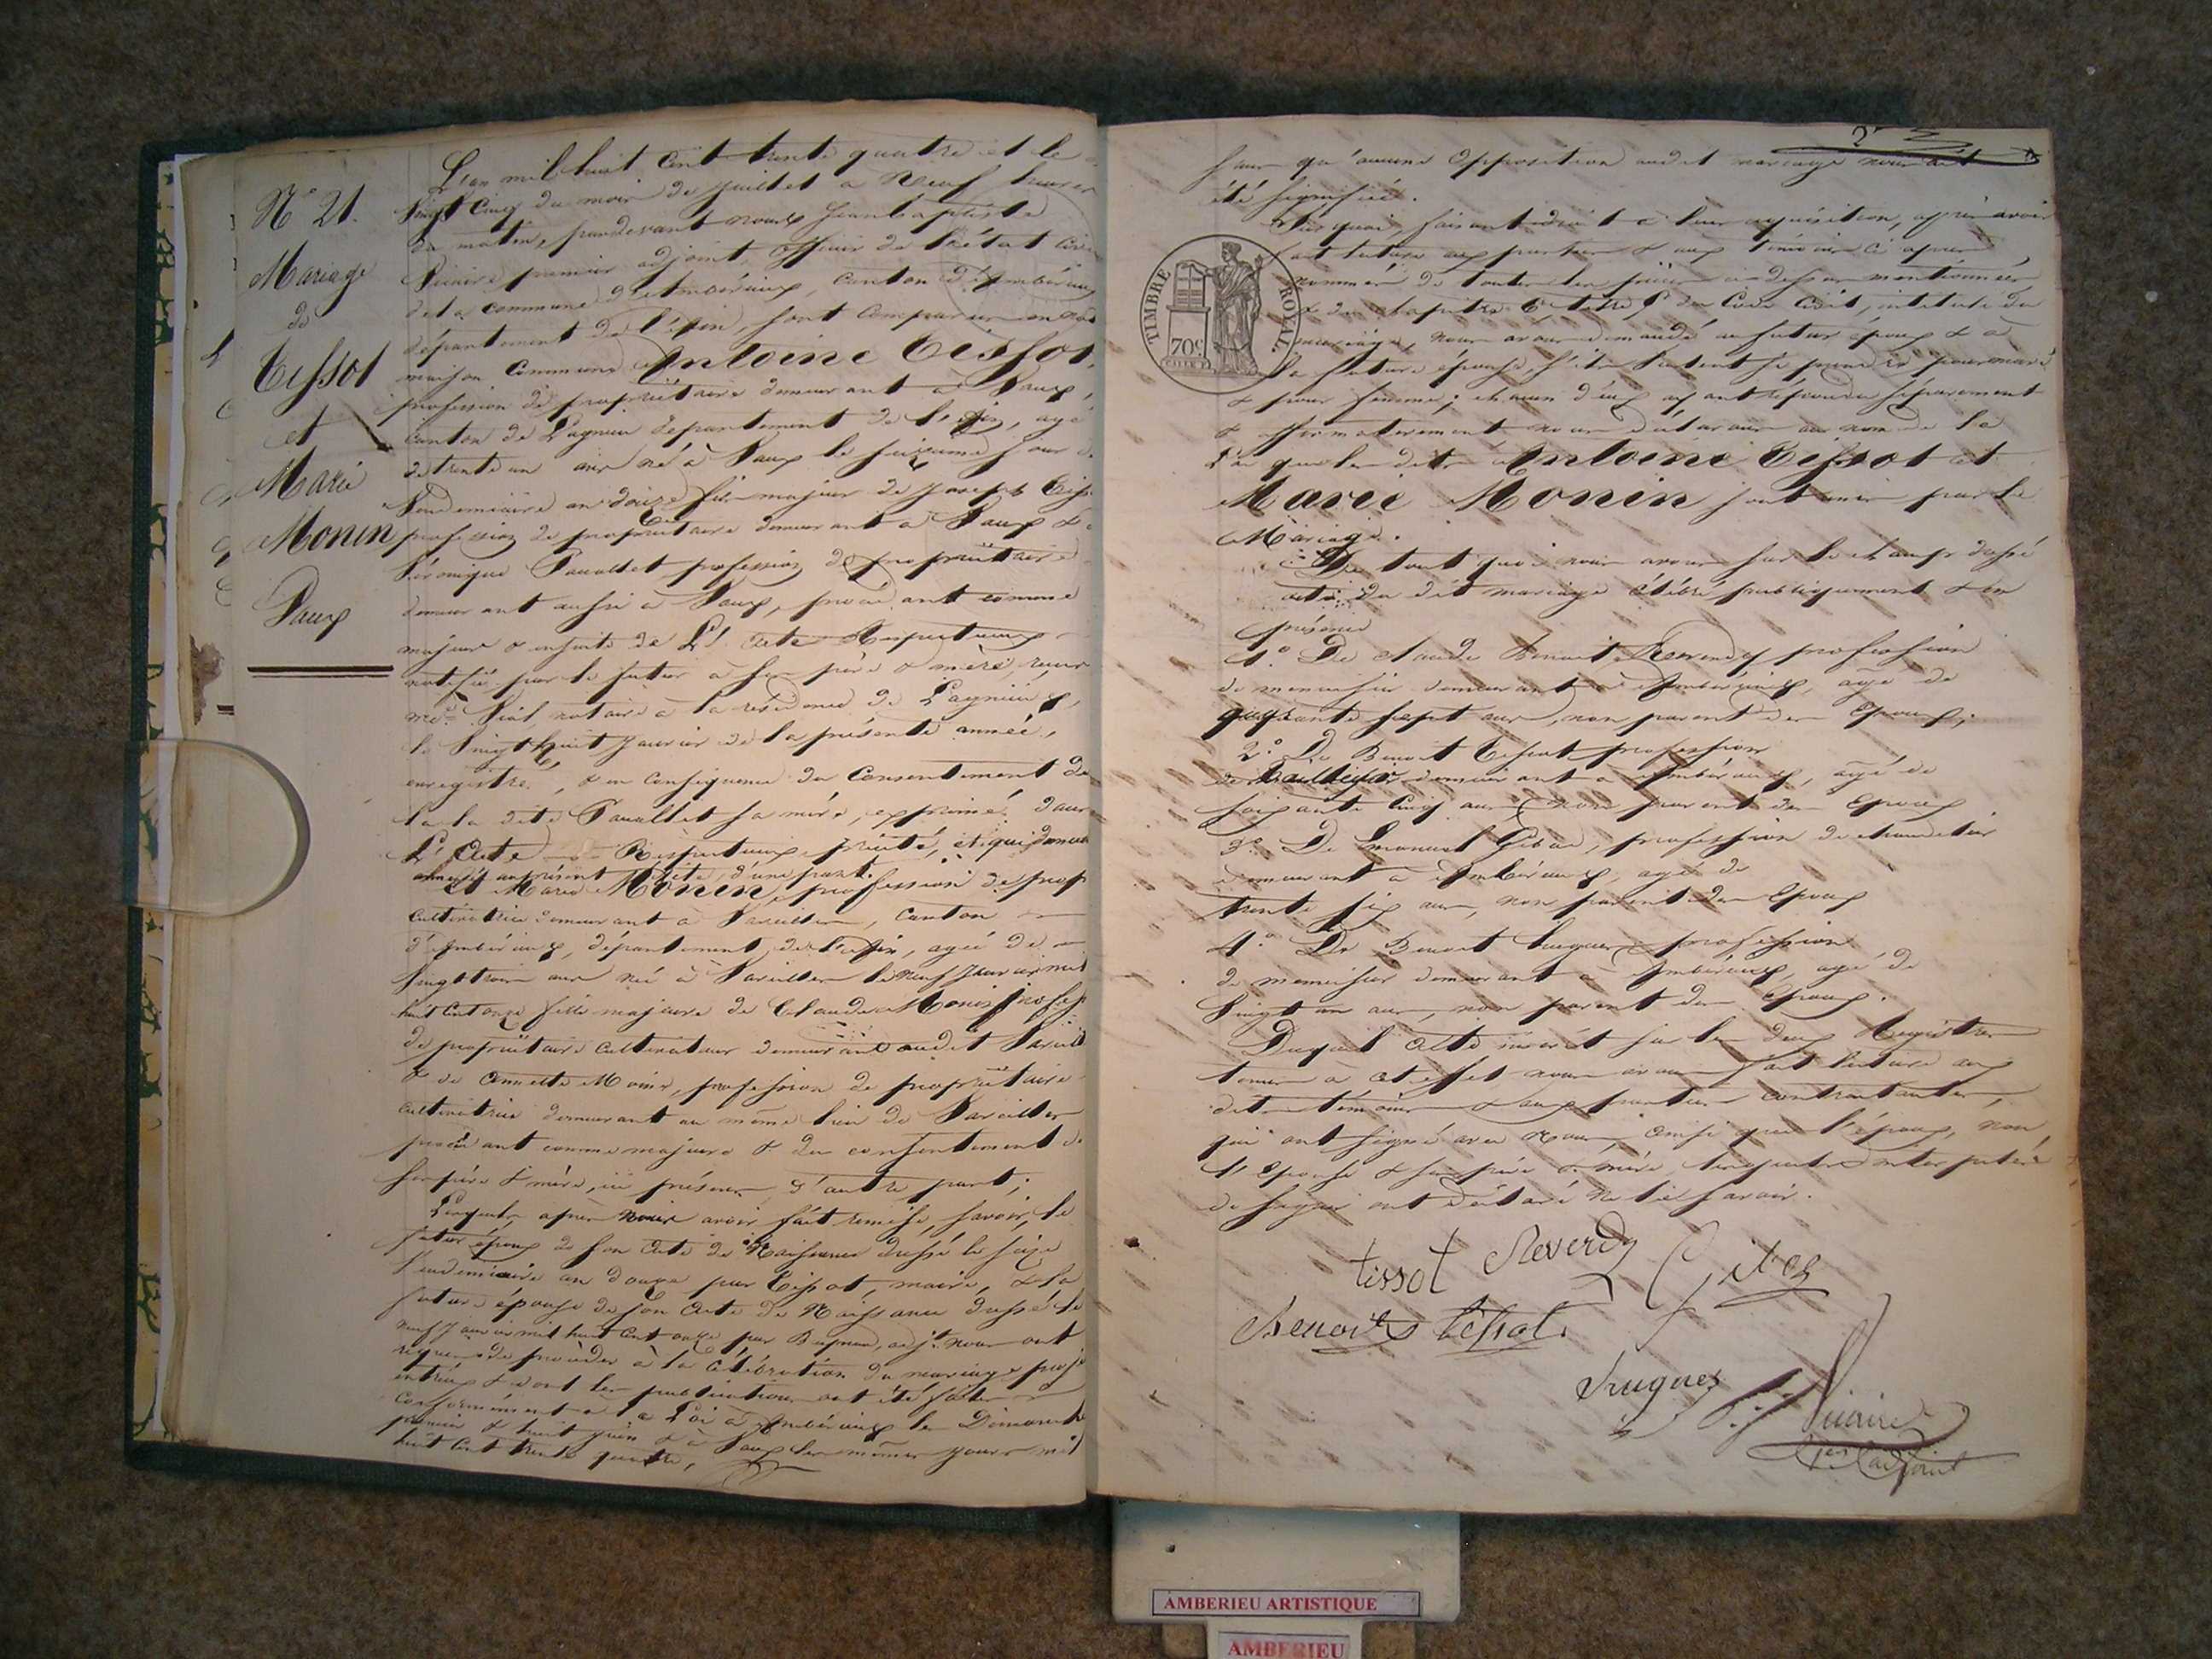 N° 21.
Mariage
de
Tissot
et
Marie
Monin
Vaux
L'an mil huit cent trente quatre et le
Vingt Cinq du mois de juillet a Neuf heures
du matin, pardevant nous Jean Baptiste
premier adjoint, officier de l'état civil
de la commune d'Ambérieux, canton d'Ambérieux
département de l'Ain, sont comparus en notre
maison commune Antoine Tissot,
profession de propriétaire demeurant à Vaux,
canton de Lagnieu département de l'Ain, agé
de trente un ans né à Vaux le seizieme jour de
Vendemiaire an douze fils majeur de Joseph Tiss
profession de propriétaire demeurant à Vaux &
Véronique profession de propriétaire
demeurant aussi à Vaux, procédant comme
majeur & ensuite de l'acte Respectueux
notifié par le futur à ses père & mère, reçu
me notaire à la résidence de Lagnieux,
le Vingt huit janvier de la présente année,
enregistré, & en conséquence du Consentement de
la dite sa mère, exprimé dans
L'Acte Respectueux précité, et qui demeure
annexé au présent acte, d'une part.
Et Marie Monin, profession de prop
cultivatrice demeurant à Vareilles, canton
d'Ambérieux, département de l'Ain, agée de
Vingt trois ans née à Vareilles le neuf janvier mil
huit cent onze fille majeure de Claude Monin profess
de propriétaire cultivateur demeurant audit Vareill
& de Annette profession de propriétaire
cultivatrice demeurant au même lieu de Vareilles
procédant comme majeure & du consentement de
ses père & mère, ici présens, d'autre part;
Lesquels, après nous avoir fait remise, savoir, le
futur époux de son acte de Naissance dressé le seize
Vendemiaire an douze par Tissot, maire, & la
future épouse de son Acte de Naissance dressé le
neuf janvier mil huit cent onze par adjt. nous ont
requis de procéder à la célébration du mariage proj
entr'eux & dont les publications ont été faites
conformément à la Loi à Ambérieux les Dimanche
premier & huit juin & à Vaux les mêmes jours mil
huit cent trente quatre,
sans qu'aucune opposition audit mariage nous ait
été signifiée.
Sur quoi, faisant droit à leur réquisition, après avoir
fait lecture aux parties & aux témoins ci après
nommés de toutes les pièces ci dessus mentionnées
& du chapitre 6, titre 5 du Code Civil, intitulé du
mariage, nous avons demandé au futur époux & à
la future épouse, s'ils veulent se prendre pour mari
& pour femme; chacun d'eux ayant répondu séparément
& affirmativement nous déclarons au nom de la
Loi que les dits Antoine Tissot et
Marie Monin sont unis par le
Mariage.
De tout quoi nous avons sur le champ dressé
acte du dit mariage célébré publiquement & en
présence
1.° De Claude Benoit Reverdy profession
de menuisier demeurant à Ambérieux, agé de
quarante sept ans, non parent des Epoux,
2.° De Benoit Tissot profession
de demeurant à Ambérieux, agé de
soixante cinq ans, non parent des Epoux
3.° De Emanuel profession de
demeurant à Ambérieux, agé de
trente six ans, non parent des Epoux
4.° De Benoit profession
de menuisier demeurant à Ambérieux, agé de
Vingt un ans, non parent des Epoux.
Duquel Acte inscrit sur les deux Registres
tenus à cet effet nous avons fait lecture aux
dits témoins & aux parties contractantes,
qui ont signé avec Nous, ainsi que l'époux, non
l'épouse & ses père & mère, lesquels interpellés
de signer ont déclaré ne le savoir.
TIMBRE ROYAL
70c
tissot Reverdy
Benoit tissot.
1er adjoint
AMBERIEU ARTISTIQUE
AMBERIEU